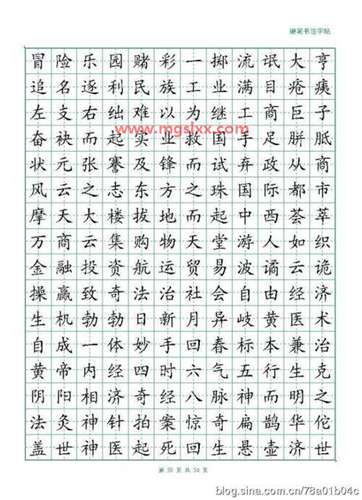 硬笔书法字帖
冒险乐园赌彩一掷流氓大亨
追名逐利民族工业满目疮痍
左支右绌难以为继工商巨子
奋袂而起实业救国手足胼胝
www.mgslxx.com
状元张謇及锋而试弃政从商
风云之志东方之珠国际都市
摩天大楼拔地而起中西荟萃
万商云集购物天堂游人如织
金融投资航运贸易波谲云诡
操赢致奇法治社会自由经济
生机勃勃日新月异岐黄医术
自成一体妙手回春标本兼治
黄帝内经四时六气五行生克
阴阳相济奇经八脉神而明之
法灸神针拍案惊奇扁鹊华佗
盖世神医起死回生悬壶济世
blog.sina.com.cn/78a01b04c